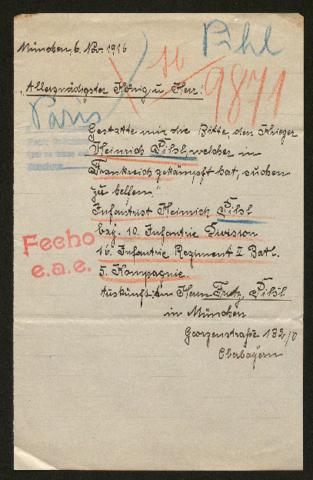 München, 6. Nov. 1916
16
Pihl
9871
„Allergnädigster König u. Herr!
Paris
Gestatte mir die Bitte, den Krieger
Heinrich Pihl, welcher in
Frankreich gekämpft hat, suchen
zu helfen."
Infanterist Heinrich Pihl
bay. 10. Infantrie Division
16. Infantrie Regiment II Batl.
5. Kompagnie
Fecho
e.a.e.
Herrn Fritz Pihl
in München
Georgenstraße 132/0
Oberbayern